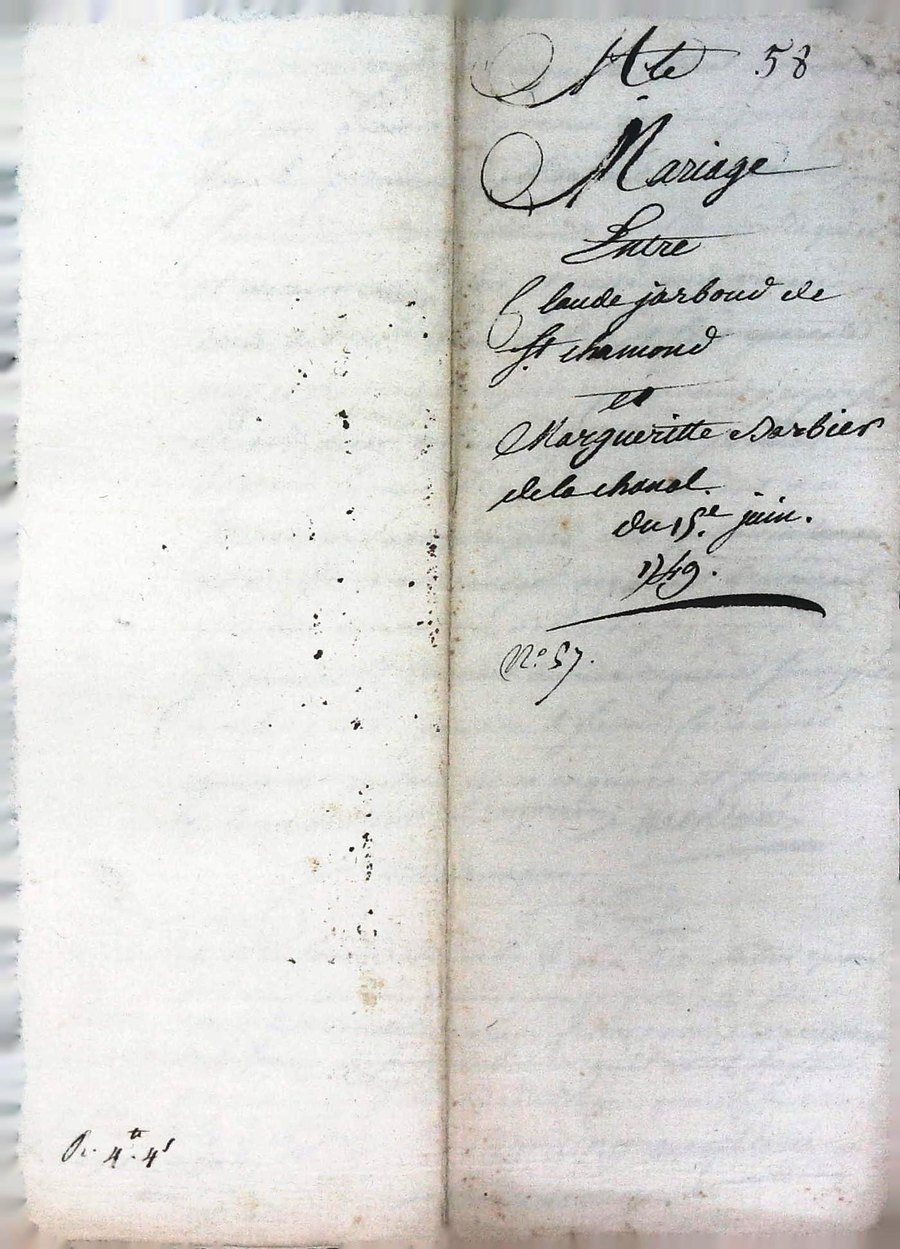 Cte 58
Mariage
Entre
Claude jarboud de
St. chamond
et
Margueritte Barbier
de la chanal.
du 15e. juin.
1749.
No. 57.
R. 4tt. 4s